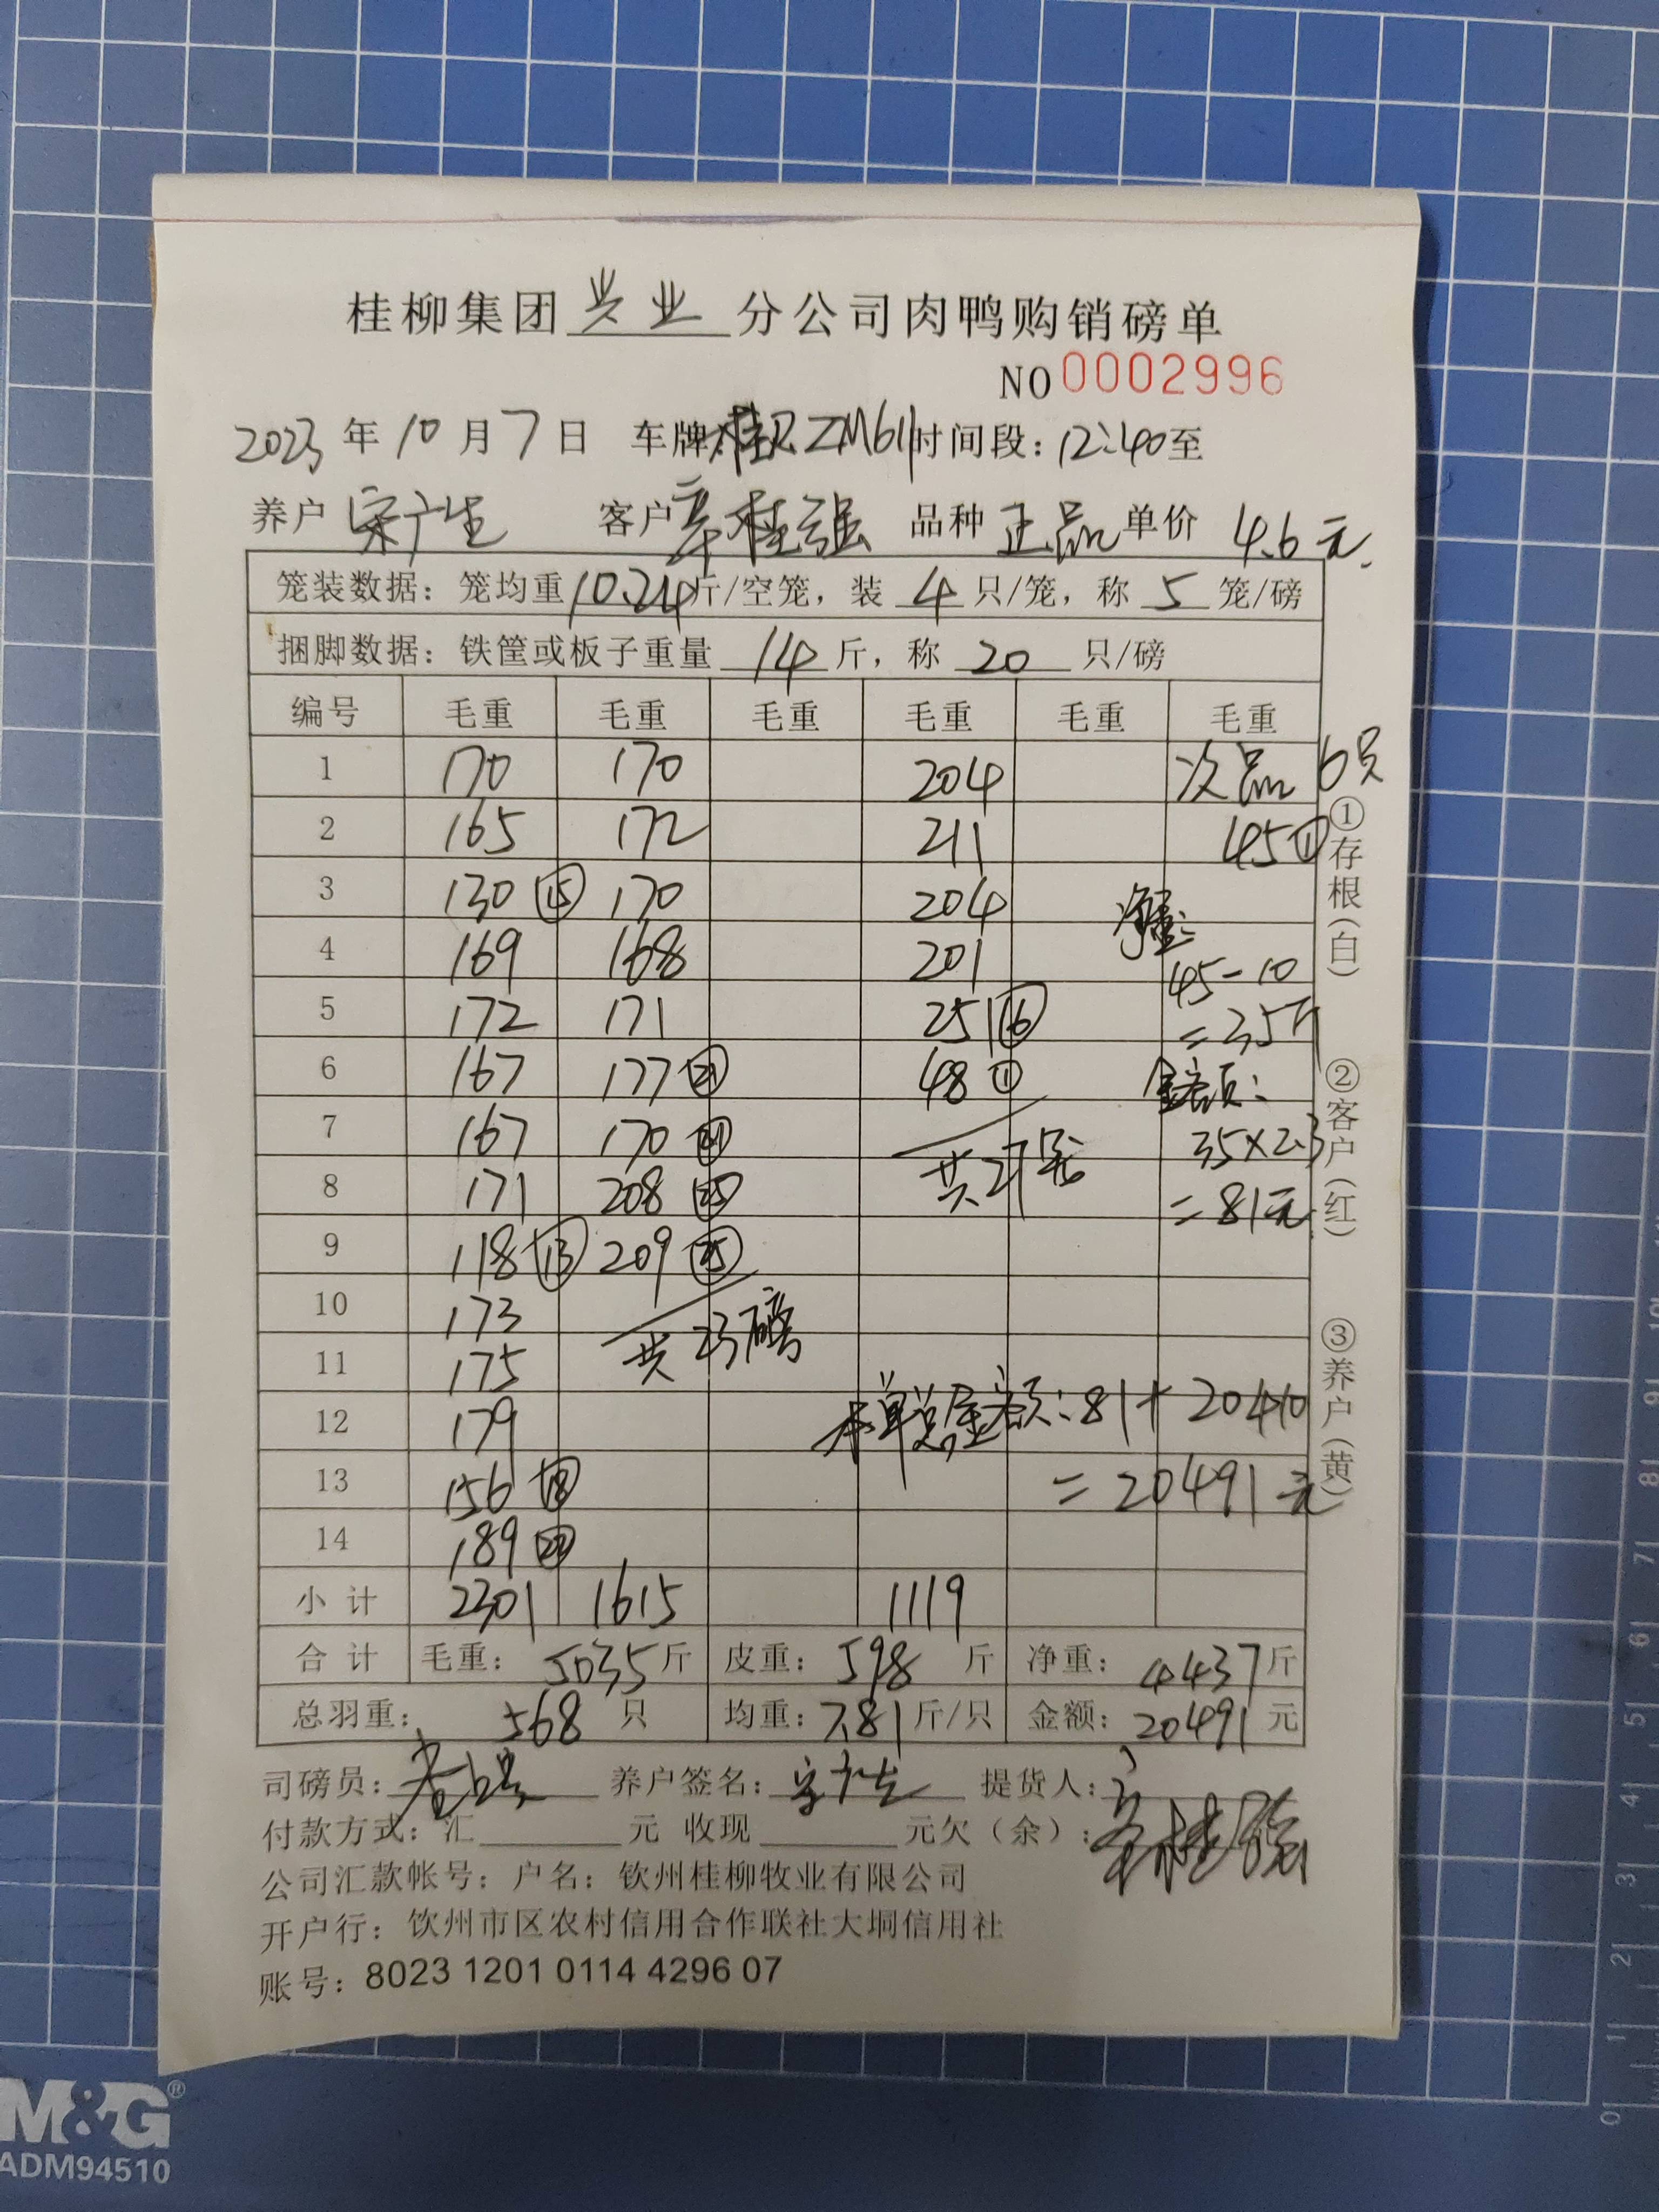 桂柳集团兴业分公司肉鸭购销磅单
NO 0002996
2023年10月7日 车牌:桂R ZM611 时间段:12:40至
养户 宋广生 客户 辛桂强 品种 正品 单价 4.6元.
笼装数据：笼均重10.24斤/空笼，装 4 只/笼，称 5 笼/磅
捆脚数据：铁筐或板子重量 14 斤，称 20 只/磅
编号 毛重 毛重 毛重 毛重 毛重 毛重
1 170 170 204 次品 6只
2 165 172 211 45①
3 130⑮ 170 204 净重：
4 169 168 201 45-10
5 172 171 251⑥ =35斤
6 167 177㉑ 48① 金额：
7 167 170 共27笼 35×2.3
8 171 208㉕ =81元
9 118⑬ 209㉕
10 173 共23磅
11 175
12 179 本单总金额：81+20410
13 156⑱ =20491元
14 189㉒
小计 2301 1615 1119
合计 毛重：5035斤 皮重：598斤 净重：4437斤
总羽重：568只 均重：7.81斤/只 金额：20491元
司磅员： 养户签名：宋广生 提货人：辛桂强
付款方式：汇 元 收现 元欠（余）：
公司汇款帐号：户名：钦州桂柳牧业有限公司
开户行：钦州市区农村信用合作联社大垌信用社
账号：8023 1201 0114 4296 07
①存根（白）
②客户（红）
③养户（黄）
M&G®
ADM94510